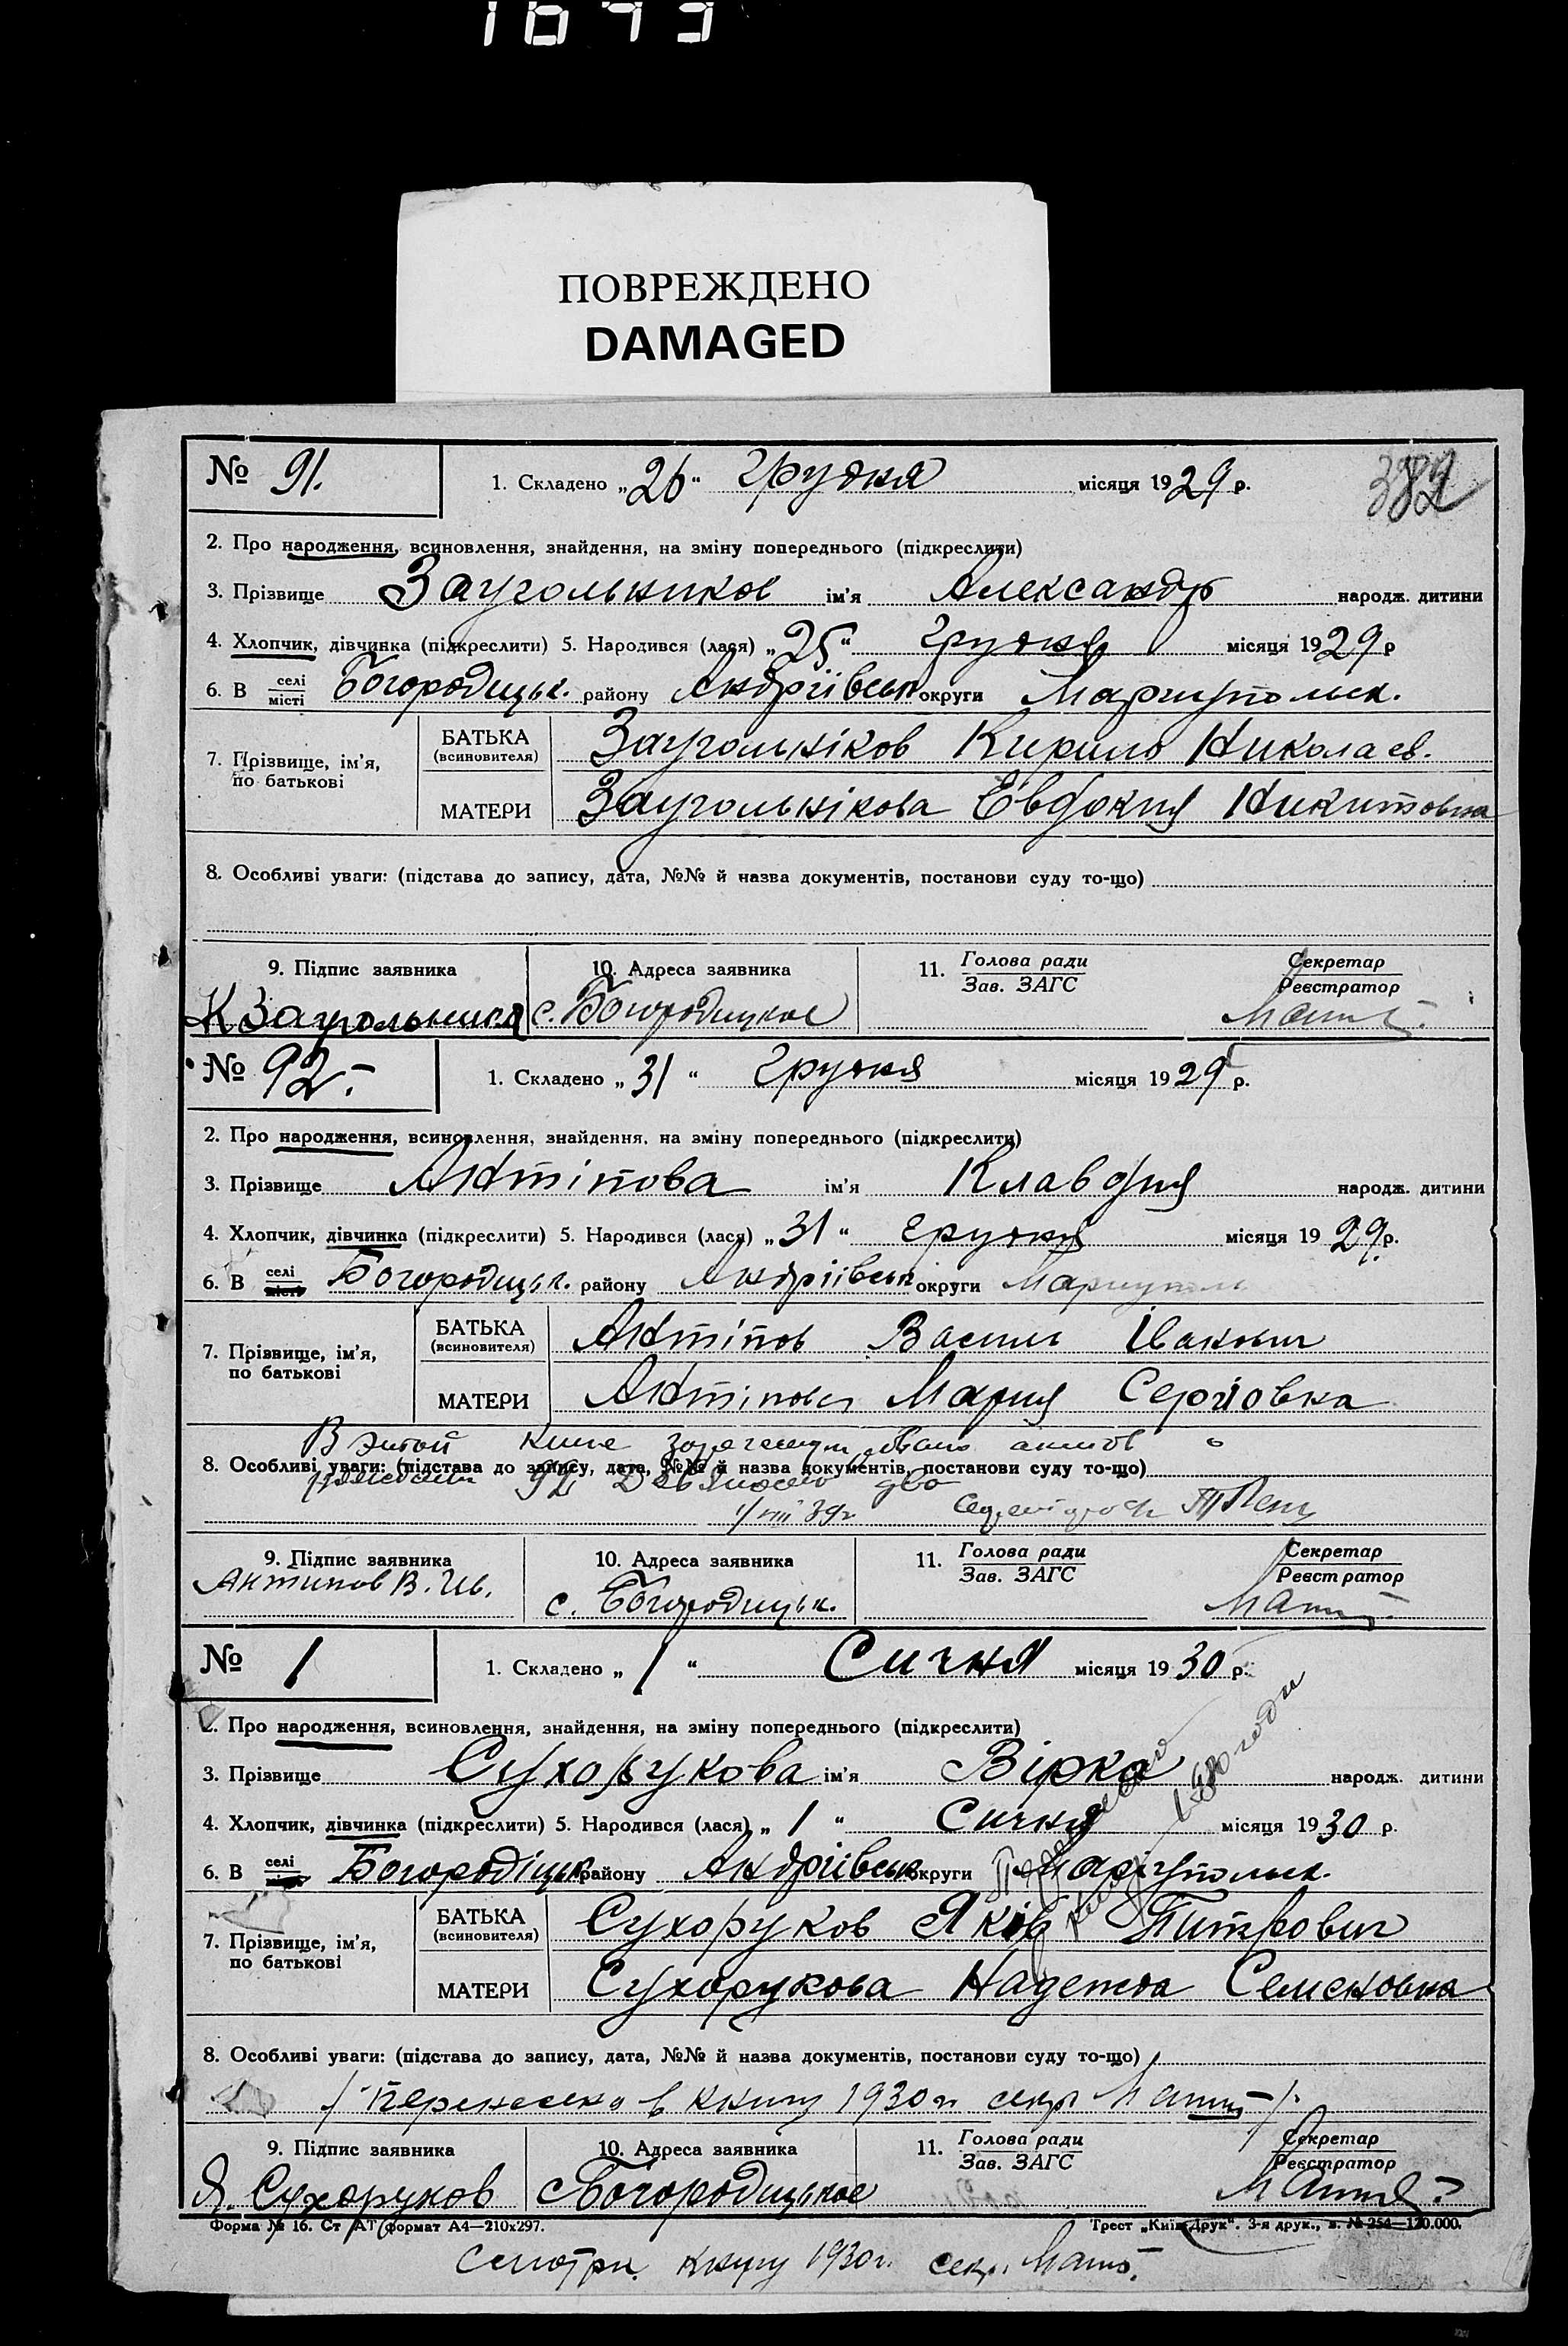 1643
ПОВРЕЖДЕНО
DAMAGED
382
№ 91. 1. Складено „26“ грудня місяця 1929 р.
2. Про народження, всиновлення, знайдення, на зміну попереднього (підкреслити)
3. Прізвище Заугольников ім'я Александр народж. дитини
4. Хлопчик, дівчинка (підкреслити) 5. Народився (лася) „25“ грудня місяця 1929 р
6. В селі місті Богородицьк. району Андріївськ округи Мариупольск.
7. Прізвище, ім'я, по батькові
БАТЬКА (всиновителя) Заугольніков Кирило Николаев.
МАТЕРИ Заугольнікова Евдокия Никитовна
8. Особливі уваги: (підстава до запису, дата, №№ й назва документів, постанови суду то-що)
9. Підпис заявника 10. Адреса заявника 11. Голова ради Зав. ЗАГС Секретар Реєстратор
К Заугольников с. Богородицкое
№ 92.- 1. Складено „31“ грудня місяця 1929 р.
2. Про народження, всиновлення, знайдення, на зміну попереднього (підкреслити)
3. Прізвище Антіпова ім'я Клавдия народж. дитини
4. Хлопчик, дівчинка (підкреслити) 5. Народився (лася) „31“ грудня місяця 1929 р.
6. В селі місті Богородицьк. району Андріївськ округи Мариуполь
7. Прізвище, ім'я, по батькові
БАТЬКА (всиновителя) Антіпов Василь Іванович
МАТЕРИ Антіпова Мария Сергіовна
В этой книге зарегестрировано актов о
8. Особливі уваги: (підстава до запису, дата, №№ й назва документів, постанови суду то-що)
рождении 92 Девяносто два
9. Підпис заявника 10. Адреса заявника 11. Голова ради Зав. ЗАГС Секретар Реєстратор
Антипов В. Ив. с. Богородицьк.
№ 1 1. Складено „1“ Сичня місяця 1930 р.
2. Про народження, всиновлення, знайдення, на зміну попереднього (підкреслити)
3. Прізвище Сухорукова ім'я Вірка народж. дитини
4. Хлопчик, дівчинка (підкреслити) 5. Народився (лася) „1“ Сичня місяця 1930 р.
6. В селі місті Богородіцьк району Андріївськ округи Мариупольск.
Перенесено
в книгу 1930 годи
7. Прізвище, ім'я, по батькові
БАТЬКА (всиновителя) Сухоруков Яків Питрович
МАТЕРИ Сухорукова Надежда Семеновна
8. Особливі уваги: (підстава до запису, дата, №№ й назва документів, постанови суду то-що)
/ Перенесено в книгу 1930 г. секр
9. Підпис заявника 10. Адреса заявника 11. Голова ради Зав. ЗАГС Секретар Реєстратор
Я. Сухоруков с Богородицькое
Форма № 16. Ст АТ формат А4—210х297. Трест „Київ-Друк“. 3-я друк., з. № 254—120.000.
Смотри. книгу 1930 г. секр.